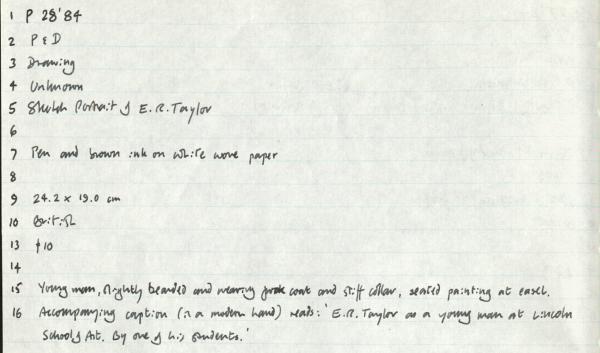 1 P 28'84
2 P & D
3 Drawing
4 Unknown
5 Sketch Portrait of E.R. Taylor
6
7 Pen and brown ink on white wove paper
8
9 24.2 x 19.0 cm
10 British
13 †10
14
15 Young man, slightly bearded and wearing frock coat and stiff collar, seated painting at easel.
16 Accompanying caption (in a modern hand) reads: 'E.R. Taylor as a young man at Lincoln
School of Art. By one of his students.'